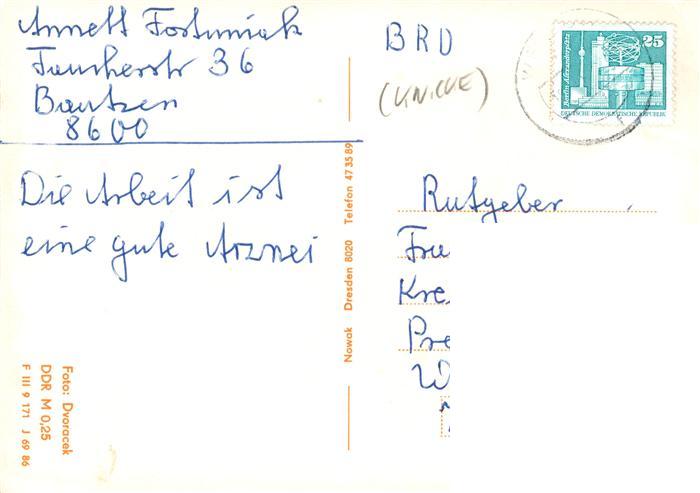 Annett Fortuniak
Taucherstr 36
Bautzen
8600
Die Arbeit ist
eine gute Arznei
BRD
(KNICKE)
25
Berlin, Alexanderplatz
DEUTSCHE DEMOKRATISCHE REPUBLIK
Rutgeber
Fra
Kre
Pre
W
Nowak Dresden 8020 Telefon 47 35 89
Foto: Dvoracek
DDR M 0,25
F III 9 171 J 69 86